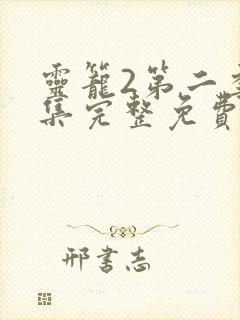 靈籠2第二季
集完整免費
邢書志